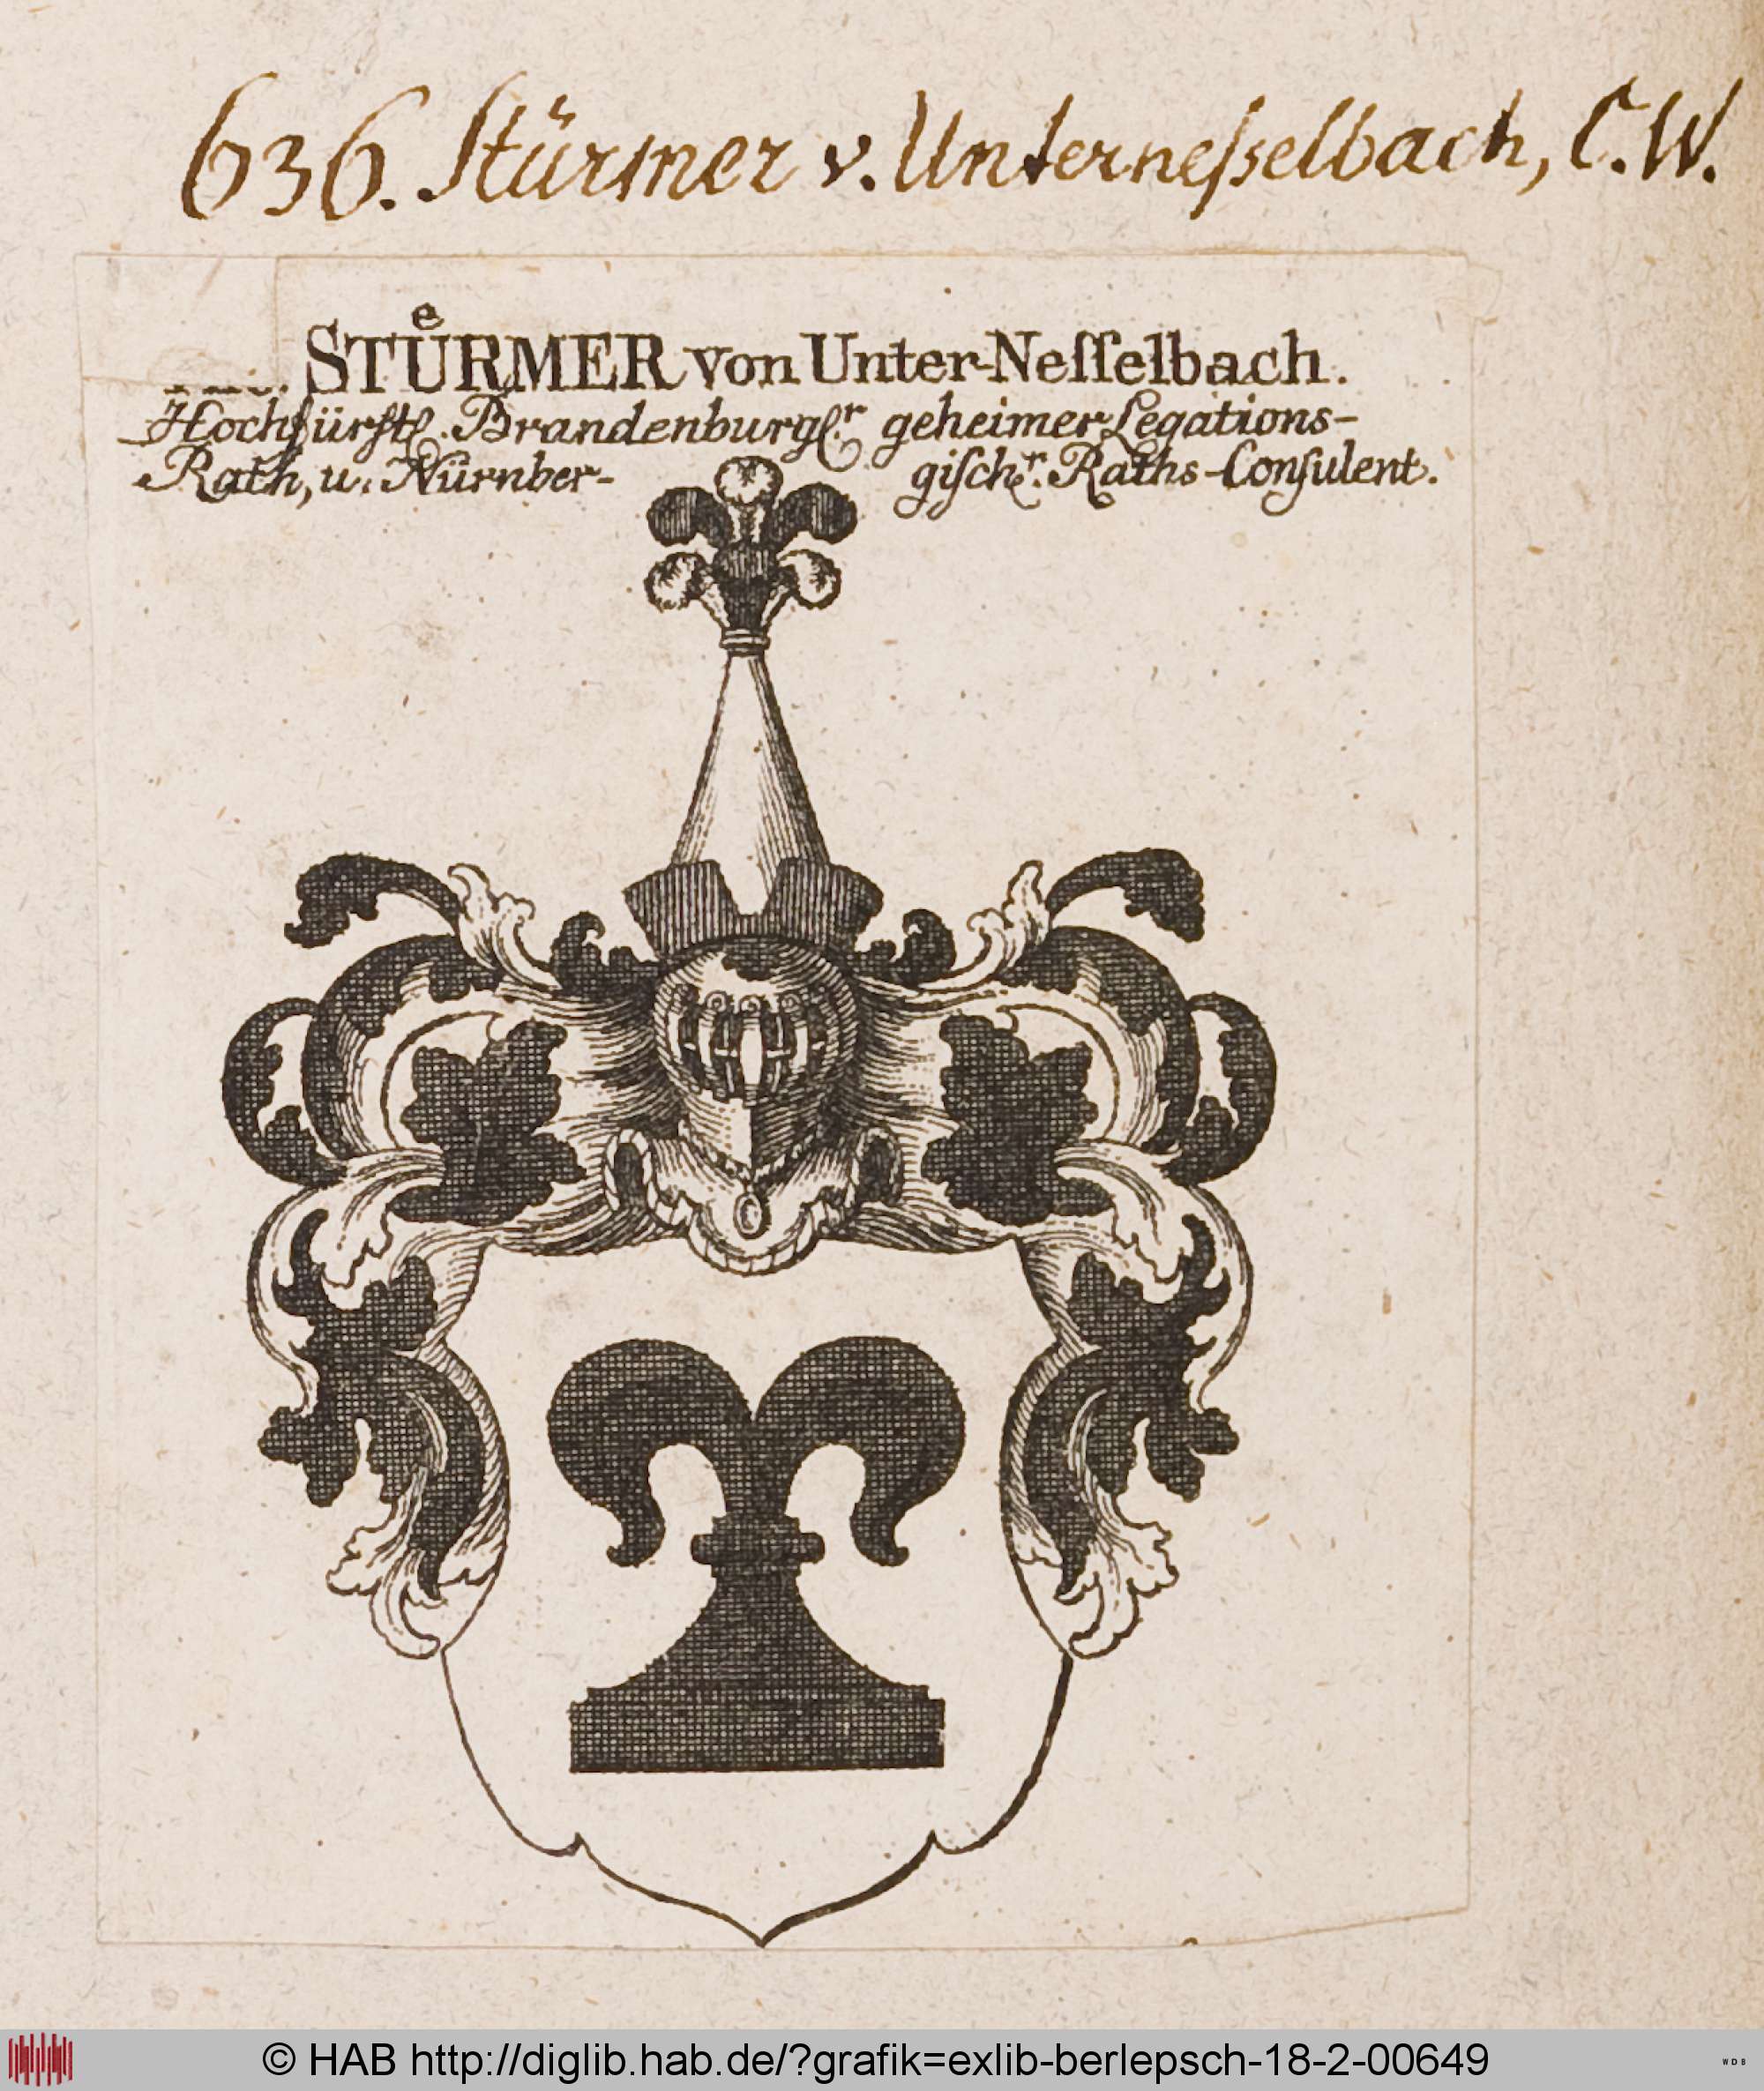 636. Stürmer v. Unterneſselbach, C. W.
STUͤRMER von Unter-Neſſelbach.
Hochfürstl. Brandenburgl.r geheimer Legations-
Rath, u. Nürnber- giſchr. Raths-Conſulent.
© HAB http://diglib.hab.de/?grafik=exlib-berlepsch-18-2-00649
WDB